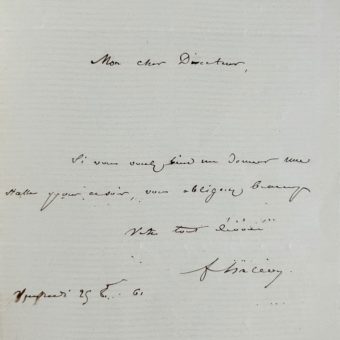 Mon cher Directeur,
Si vous voulez bien me donner une
stalle pour ce soir, vous obligerez beaucoup
Votre tout dévoué
Vendredi 25